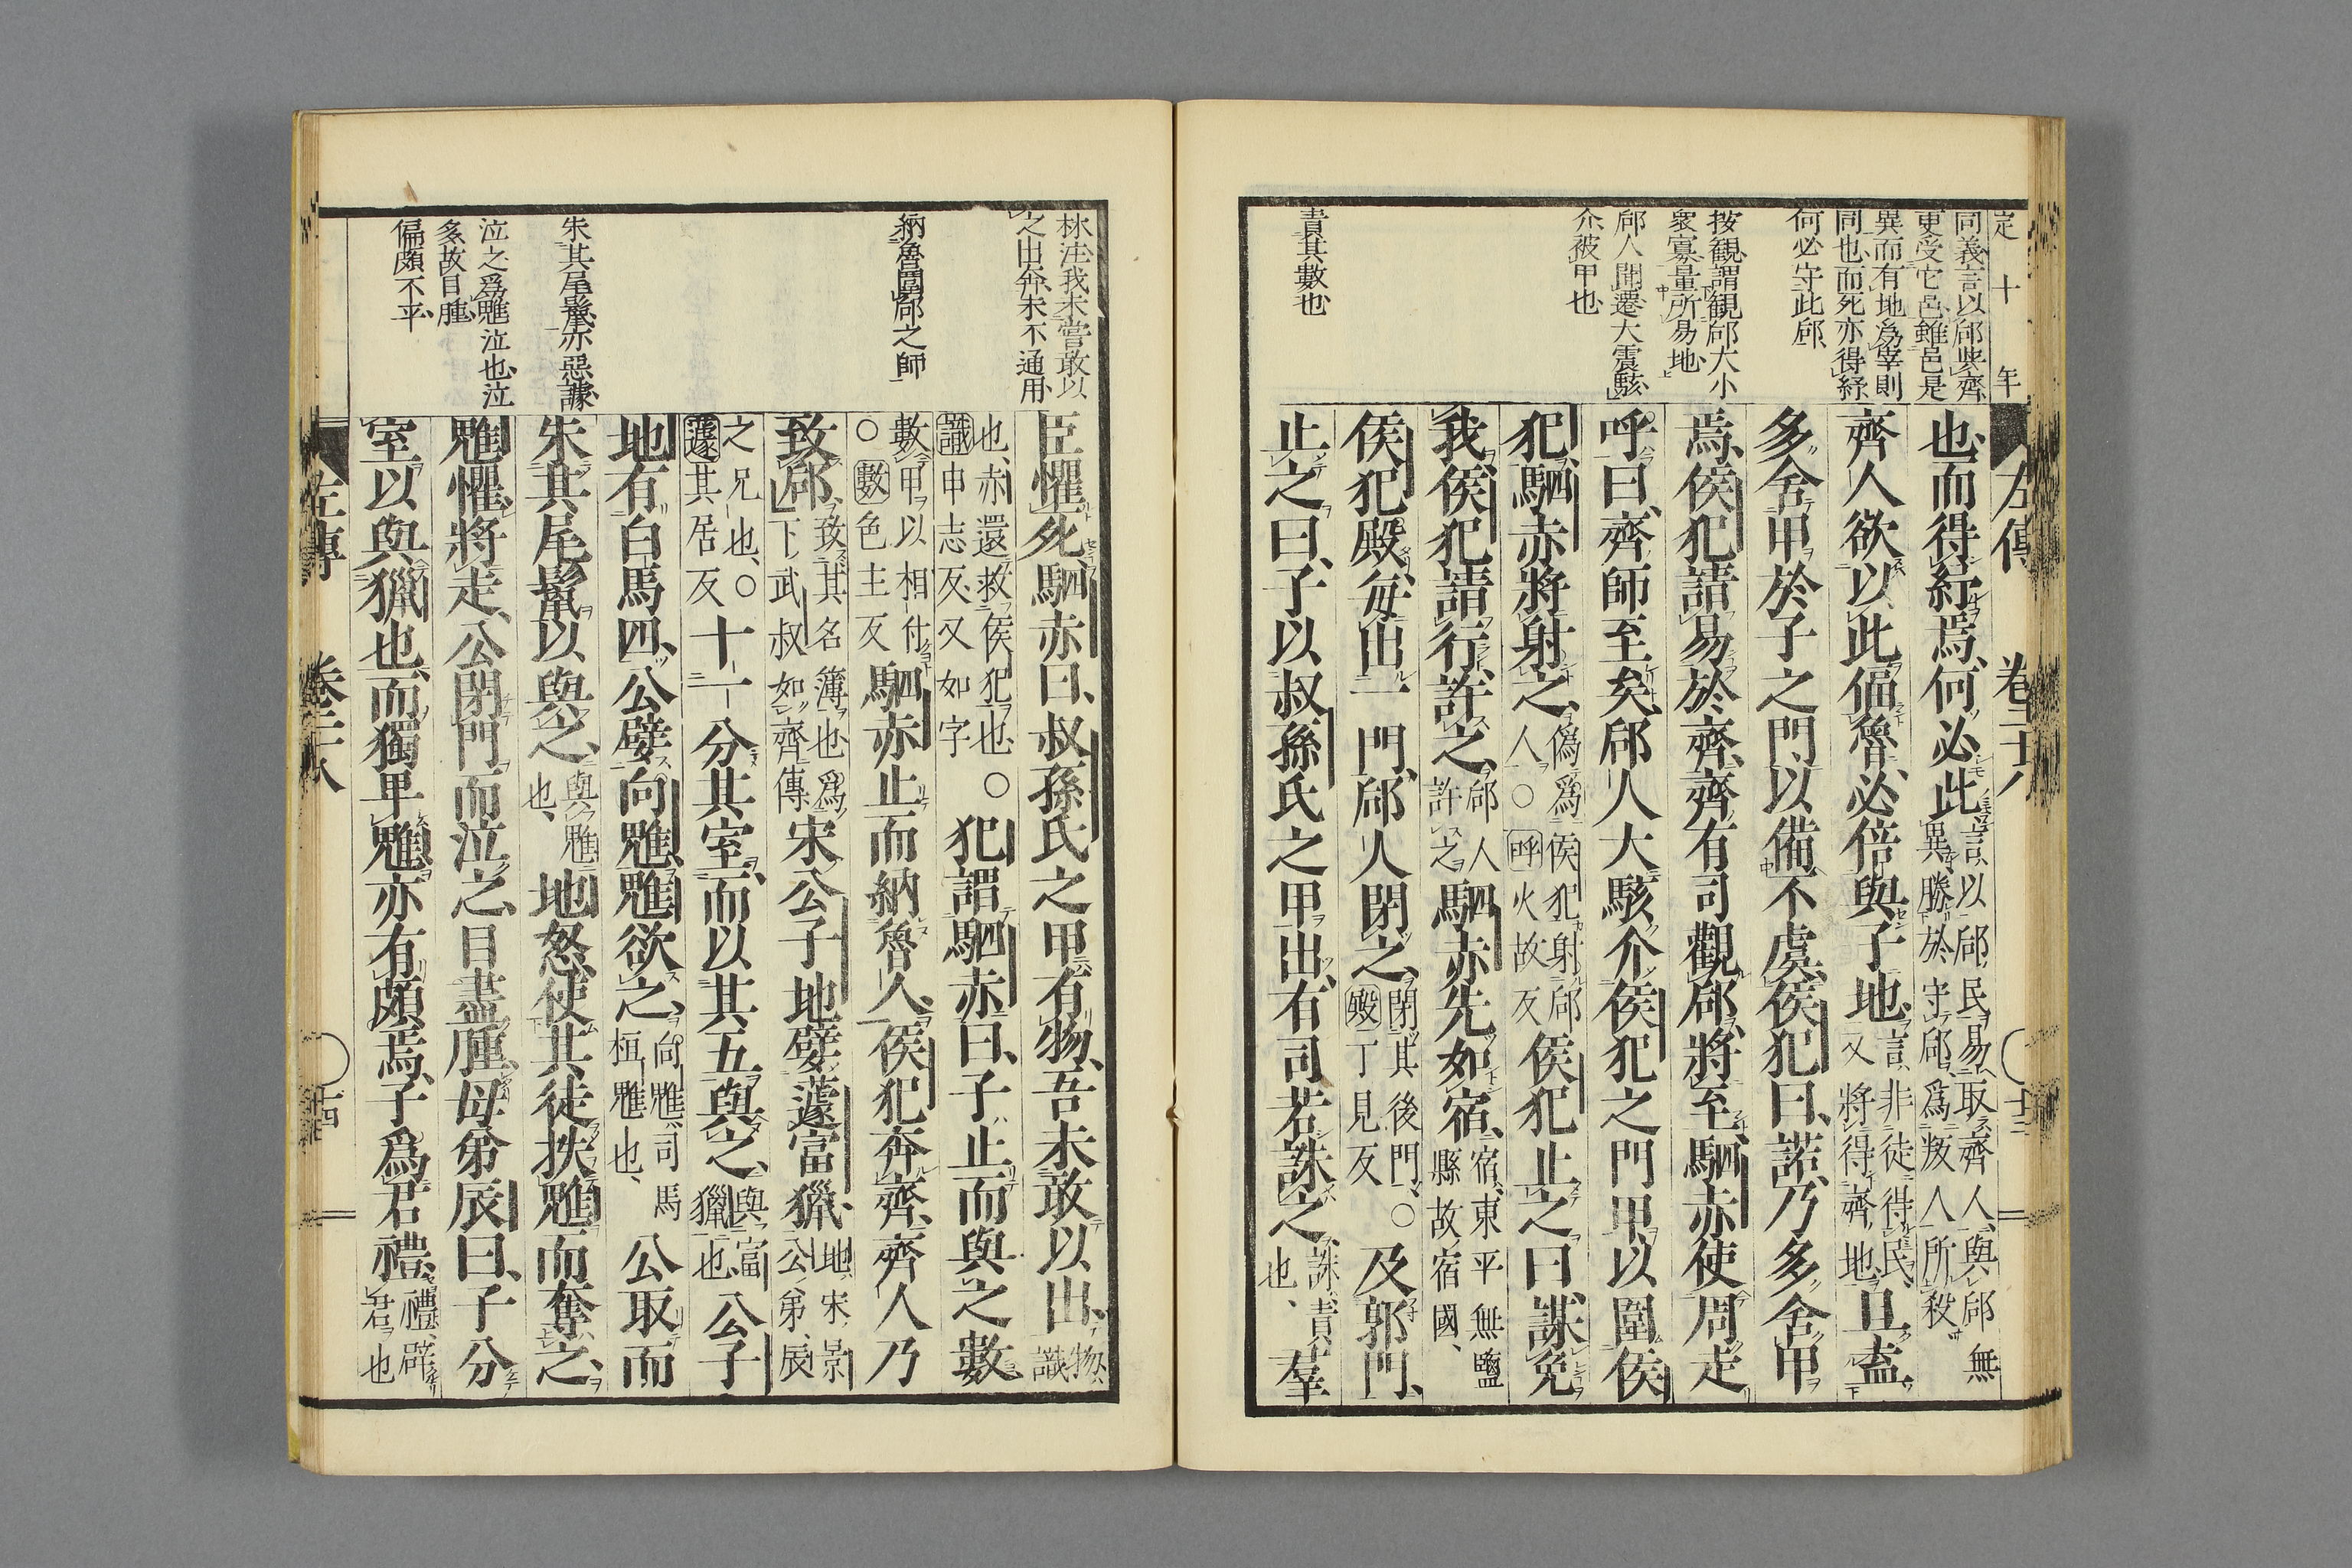 定十年
同義言以郈與齊
更受它邑雖邑是
異而有地爲宰則
同也而死亦得紓
何必守此郈
按觀謂觀郈大小
衆寡量所易地
郈人聞遷大震駭
介被甲也
責其數也
左傳 卷二十八 十三
也而得紓焉何必此言以郈民易取齊人與郈無異勝於守郈爲叛人所殺
齊人欲以此偪魯必倍與子地言非徒得民又將得齊地且盍
多舍甲於子之門以備不虞侯犯曰諾乃多舍甲
焉侯犯請易於齊齊有司觀郈將至駟赤使周走
呼曰齊師至矣郈人大駭介侯犯之門甲以圍侯
犯駟赤將射之僞爲侯犯射郈人○呼火故反侯犯止之曰謀免
我侯犯請行許之郈人許之駟赤先如宿宿東平無鹽縣故宿國
侯犯殿每出一門郈人閉之閉其後門○殿丁見反及郭門
止之曰子以叔孫氏之甲出有司若誅之誅責也羣
林注我未嘗敢以
之出奔未不通用
納魯圍郈之師
朱其尾鬣亦惡謔
泣之爲魋泣也泣
多故目腫
偏頗不平
臣懼死駟赤曰叔孫氏之甲有物吾未敢以出物識
也赤還救侯犯也○識申志反又如字犯謂駟赤曰子止而與之數
數甲以相付○數色主反駟赤止而納魯人侯犯奔齊齊人乃
致郈致其名簿也爲下武叔如齊傳宋公子地嬖蘧富獵地宋景公弟辰
之兄也○蘧其居反十一分其室而以其五與之與富獵也公子
地有白馬四公嬖向魋魋欲之向魋司馬桓魋也公取而
朱其尾鬣以與之與魋也地怒使其徒抶魋而奪之
魋懼將走公閉門而泣之目盡腫母弟辰曰子分
室以與獵也而獨卑魋亦有頗焉子爲君禮禮辟君也
左傳 卷二十八 十四